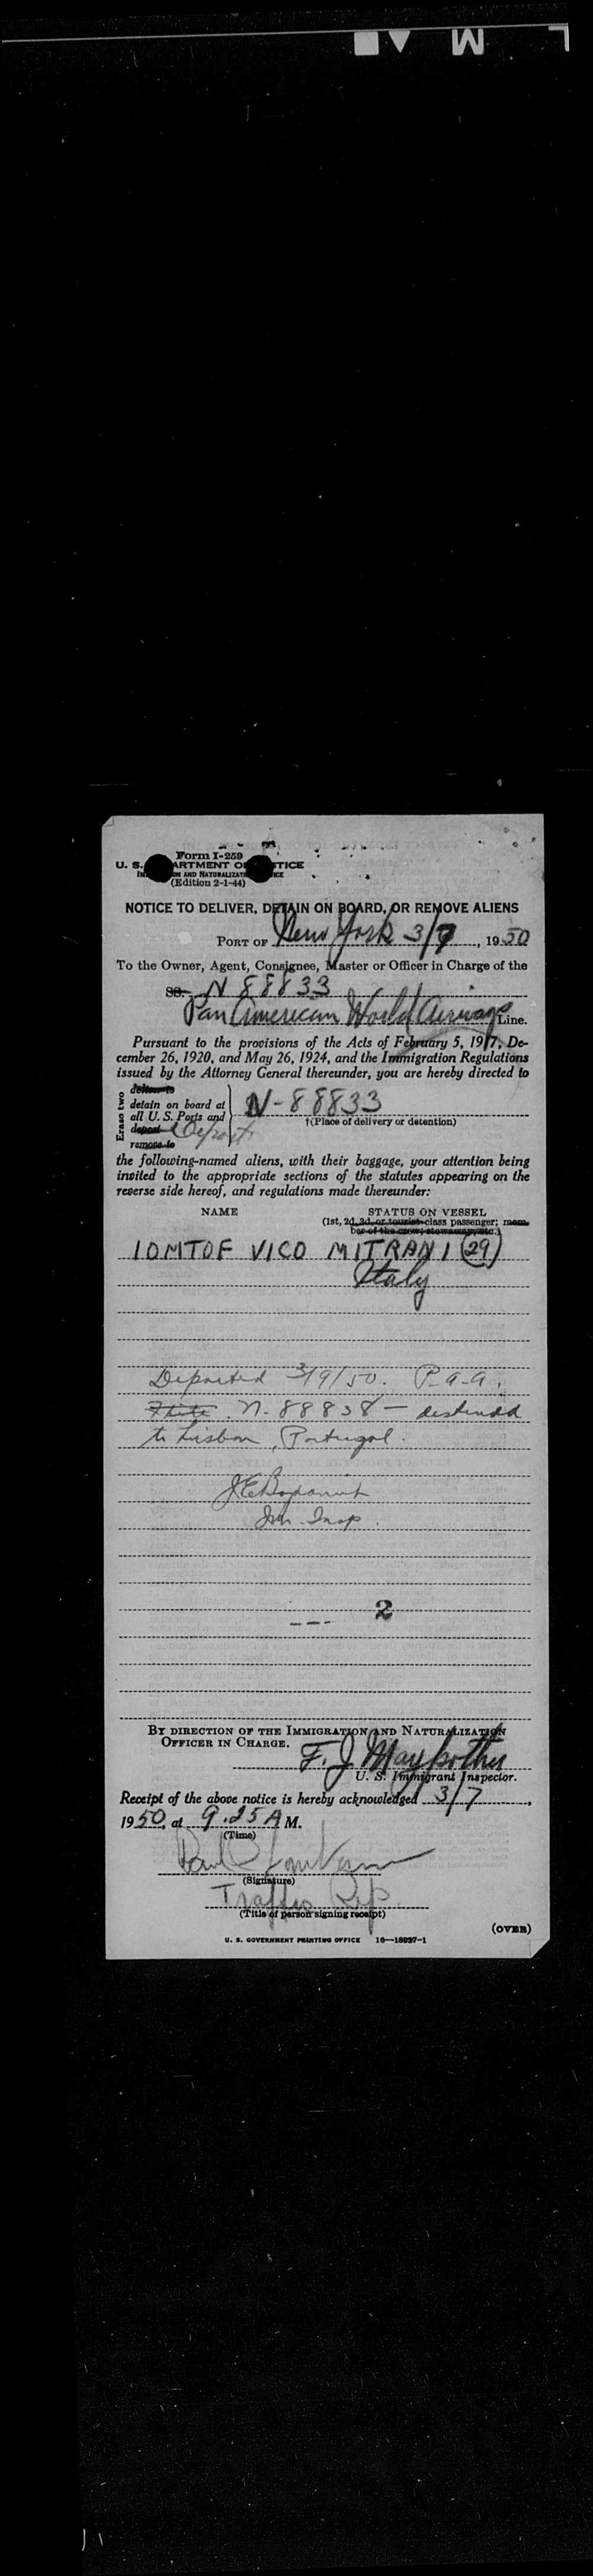 Form I-259
U. S. DEPARTMENT OF JUSTICE
IMMIGRATION AND NATURALIZATION SERVICE
(Edition 2-1-44)
NOTICE TO DELIVER, DETAIN ON BOARD, OR REMOVE ALIENS
PORT OF New York 3/7, 1950
To the Owner, Agent, Consignee, Master or Officer in Charge of the
SS. N 88833
Pan American World Airways Line.
Pursuant to the provisions of the Acts of February 5, 1917, De-
cember 26, 1920, and May 26, 1924, and the Immigration Regulations
issued by the Attorney General thereunder, you are hereby directed to
Erase two
deliver to
detain on board at
all U. S. Ports and
deport
remove to
N-88833
†(Place of delivery or detention)
the following-named aliens, with their baggage, your attention being
invited to the appropriate sections of the statutes appearing on the
reverse side hereof, and regulations made thereunder:
NAME STATUS ON VESSEL
(1st, 2d, 3d, or tourist-class passenger; mem-
ber of the crew; stowaway, etc.)
IOMTOF VICO MITRANI (29)
Italy
Departed 3/9/50. P.A.A.
N-88838 - destined
to Lisbon, Portugal.
Im. Insp.
2
BY DIRECTION OF THE IMMIGRATION AND NATURALIZATION
OFFICER IN CHARGE.
F. J.
U. S. Immigrant Inspector.
Receipt of the above notice is hereby acknowledged 3/7,
1950, at 9.25 A M.
(Time)
Paul
(Signature)
Traffic Rep.
(Title of person signing receipt)
(OVER)
U. S. GOVERNMENT PRINTING OFFICE 16—18997-1